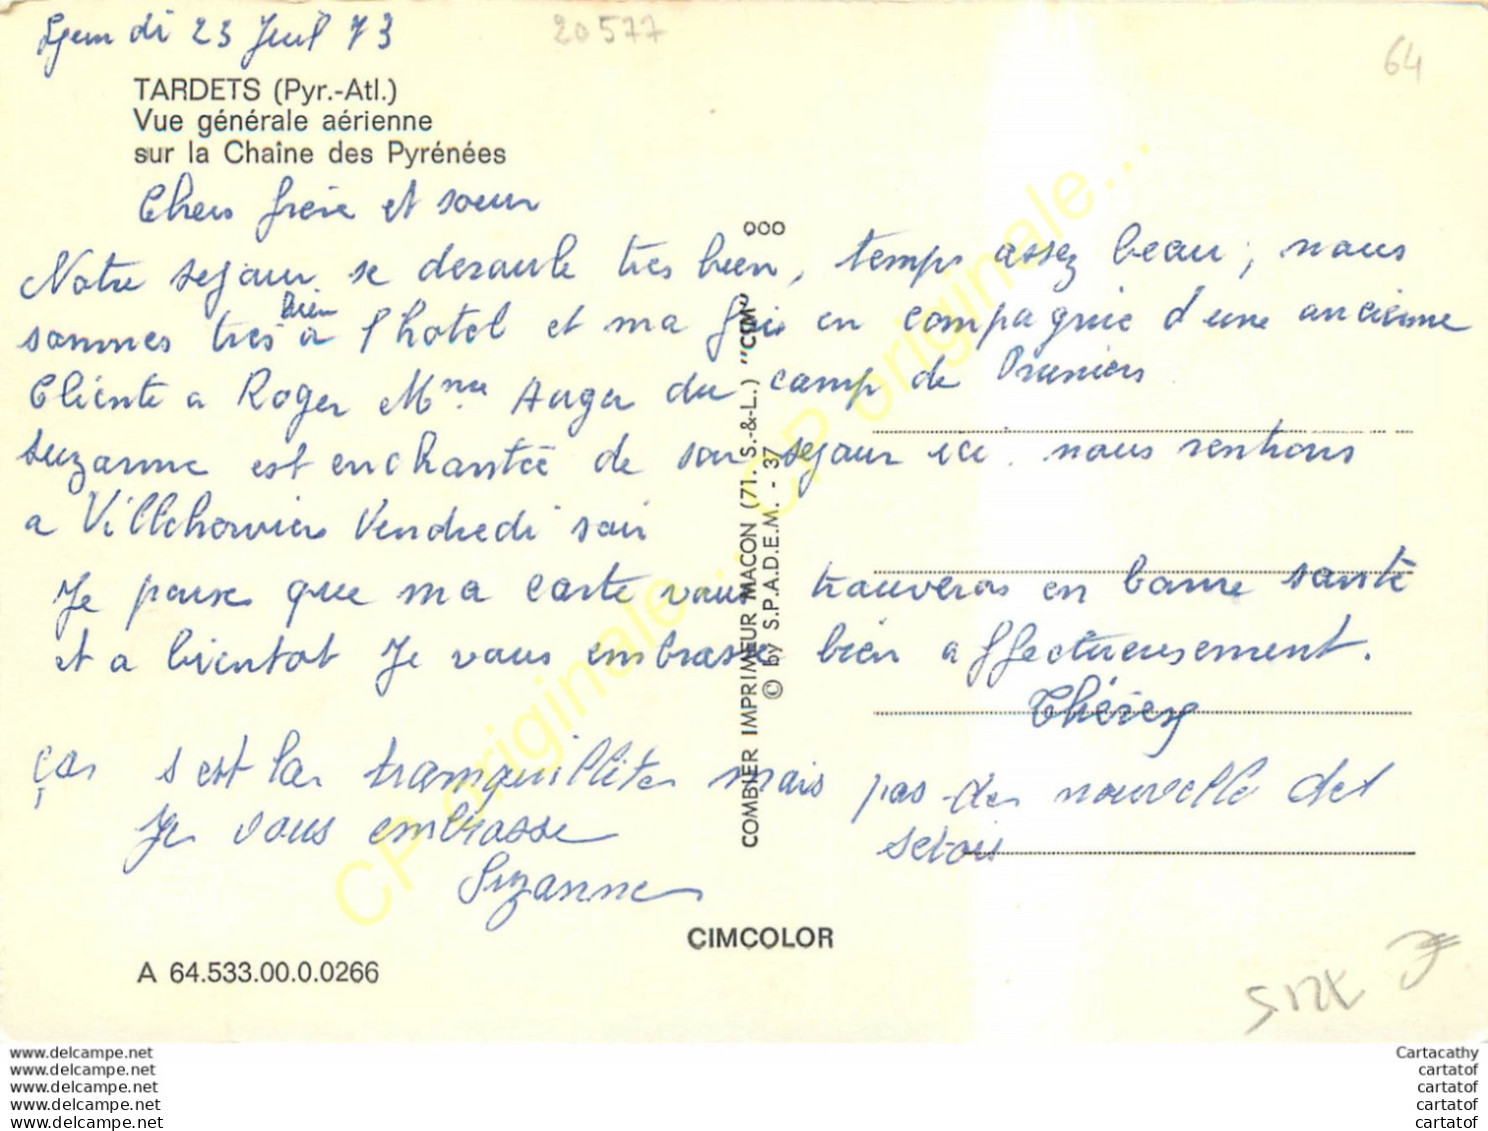 di 23 Juil 73
20577
64
TARDETS (Pyr.-Atl.)
Vue générale aérienne
sur la Chaîne des Pyrénées
Chers frère et soeur
Notre sejour se deroule tres bien, temps assez beau, nous
sommes tres bien a l'hotel et ma foi en compagnie d'une ancienne
Cliente a Roger Mme Auger du camp de Pruniers
Suzanne est enchantée de son sejour ici. nous rentrons
a Villehervier Vendredi soir
Je pense que ma carte vous trouveras en bonne santé
et a bientot Je vous embrasse bien affectueusement.
Thérèse
ças s est la tranquillite mais pas de nouvelle det
setois
Je vous embrasse
Suzanne
000
COMBIER IMPRIMEUR MACON (71. S.-&-L.) "CIM"
© by S.P.A.D.E.M. - 37
CIMCOLOR
A 64.533.00.0.0266
CP originale... CP originale...
www.delcampe.net
www.delcampe.net
www.delcampe.net
www.delcampe.net
www.delcampe.net
Cartacathy
cartatof
cartatof
cartatof
cartatof